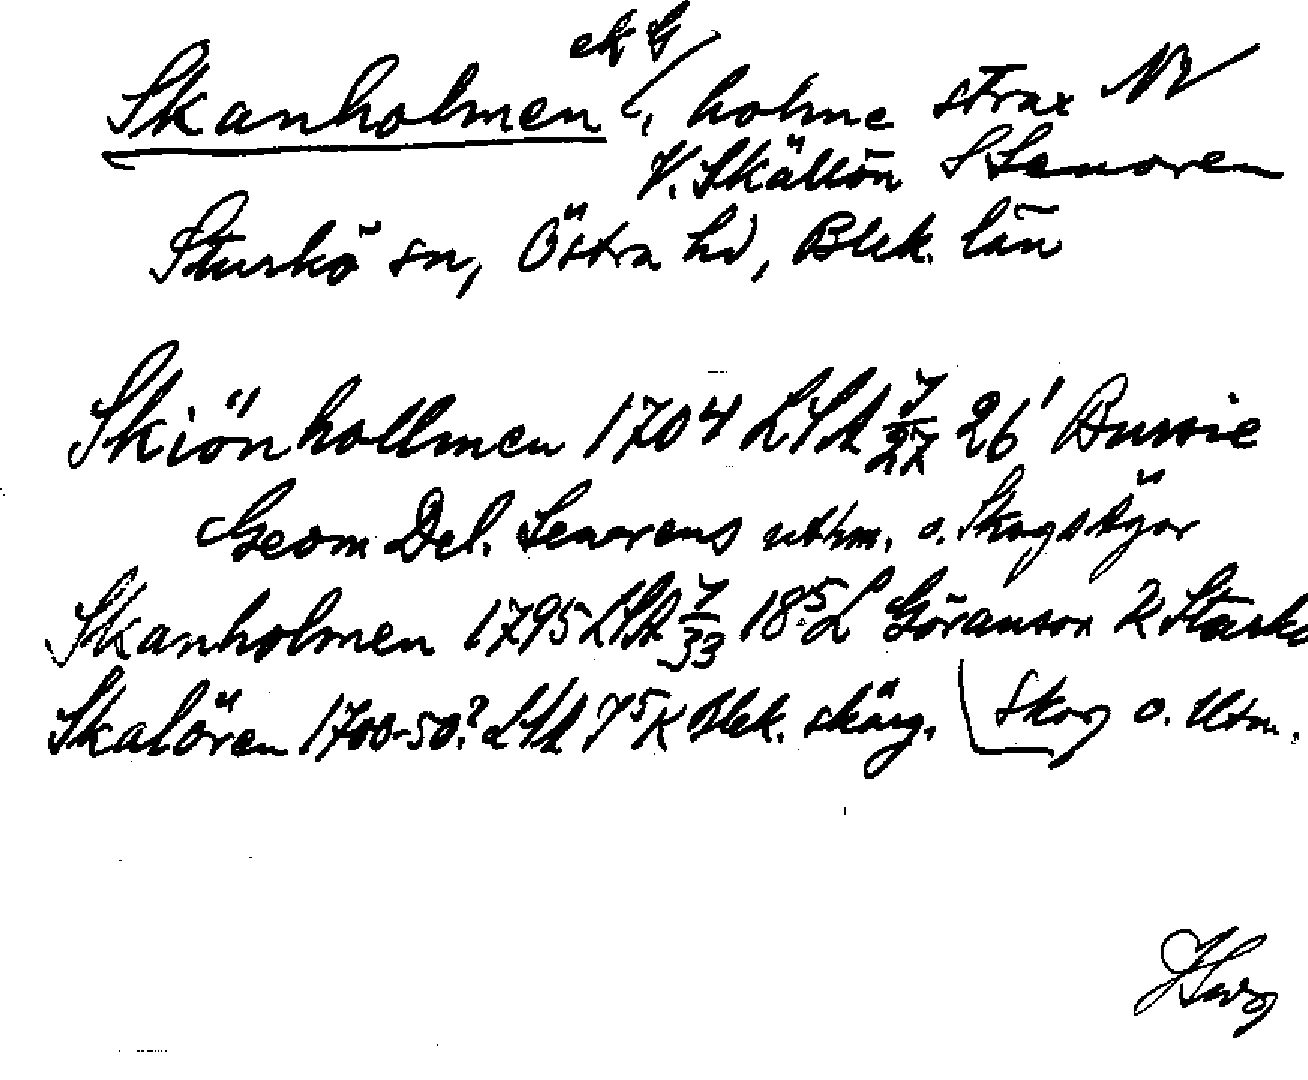 ek G
Skanholmen, holme strax NV
V. Skällön S Senoren
Sturkö sn, Östra hd, Blek. län
Skiönhollmen 1704 LSA 7/27 26' Bussie
Geom Del. Senorens utkm. o. Skogstägor
Skanholmen 1795 LSA 7/33 18:5 L Göranson R Sturkö
Skalören 1700-50? LSA 75K Blek. skärg. Skog o. Utm.